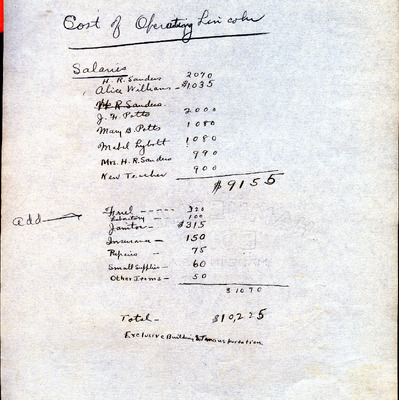 Cost of Operating Lincoln
Salaries
H. R. Sanders 2070
Alice Williams - $1035
H R Sanders
J. H. Potts 2000
Mary B. Potts 1080
Mabel Lybolt 1080
Mrs. H. R. Sanders 990
New Teacher 900
$9155
add Fuel ---- 320
Laboratory - 100
Janitor - $315
Insurance - 150
Repairs - 75
Small Supplies - 60
Other Items - 50
$1070
Total - $10,225
Exclusive Building & Transportation